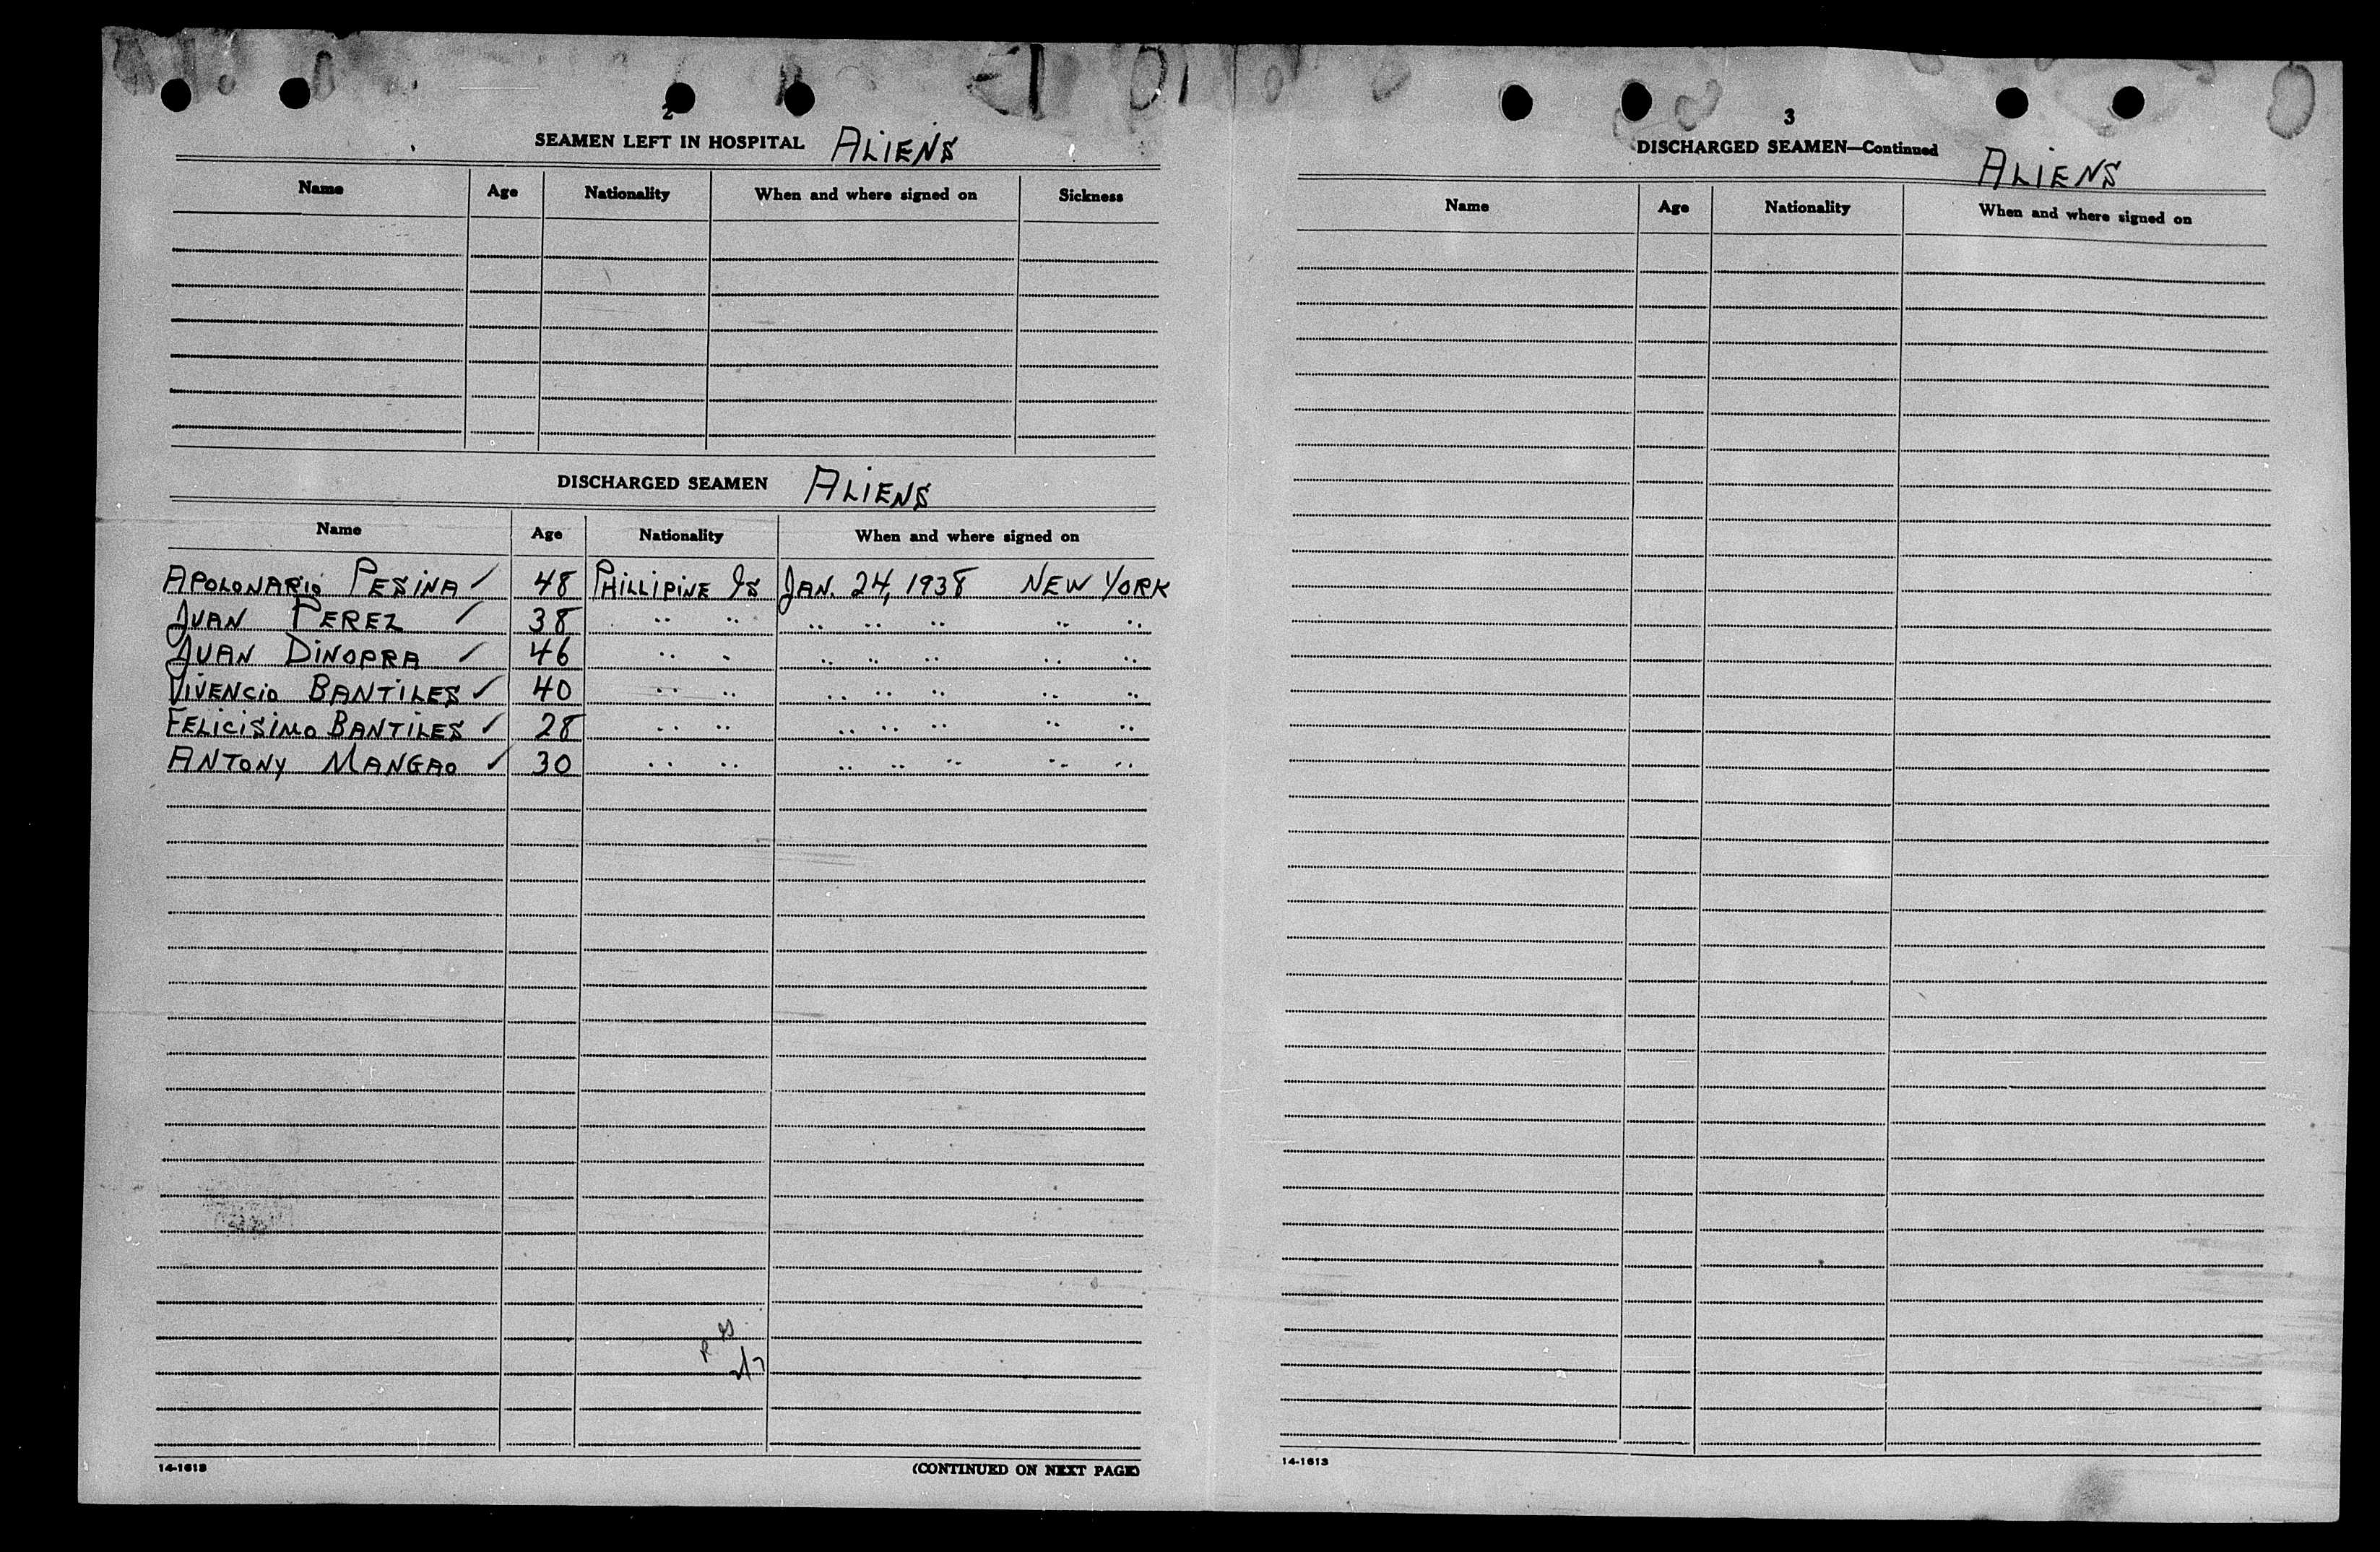 2
SEAMEN LEFT IN HOSPITAL ALIENS
Name Age Nationality When and where signed on Sickness
DISCHARGED SEAMEN ALIENS
Name Age Nationality When and where signed on
APOLONARIO PESINA ✓ 48 PHILLIPINE IS JAN. 24, 1938 NEW YORK
JUAN PEREZ ✓ 38 " " " " " " "
JUAN DINOPRA ✓ 46 " " " " " " "
VIVENCIO BANTILES ✓ 40 " " " " " " "
FELICISIMO BANTILES ✓ 28 " " " " " " "
ANTONY MANGAO ✓ 30 " " " " " " "
14-1613 (CONTINUED ON NEXT PAGE)
3
DISCHARGED SEAMEN—Continued ALIENS
Name Age Nationality When and where signed on
14-1613